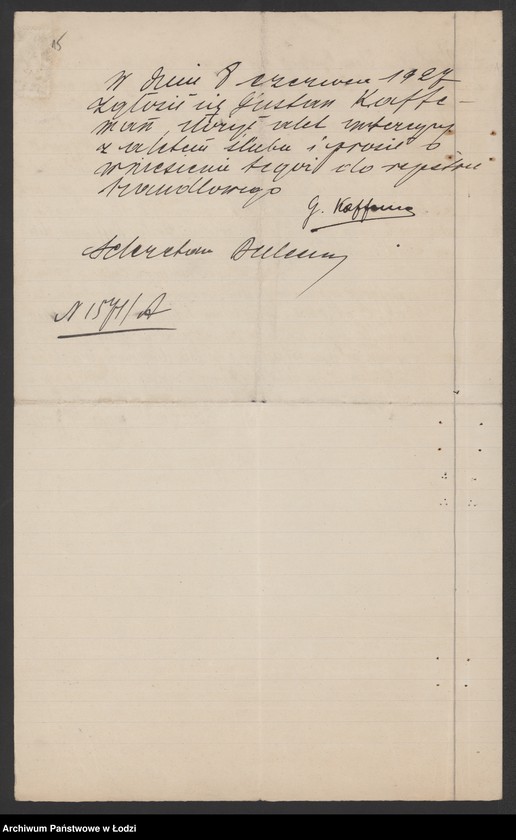 15
W dniu 8 czerwca 1927
zgłosił się Gustaw Kaffe-
man złożył akt intercyzy
z aktem ślubu i prosił o
wniesienie tegoż do rejestru
handlowego
G. Kaffeman
Sekretarz
N 1571/A
Archiwum Państwowe w Łodzi